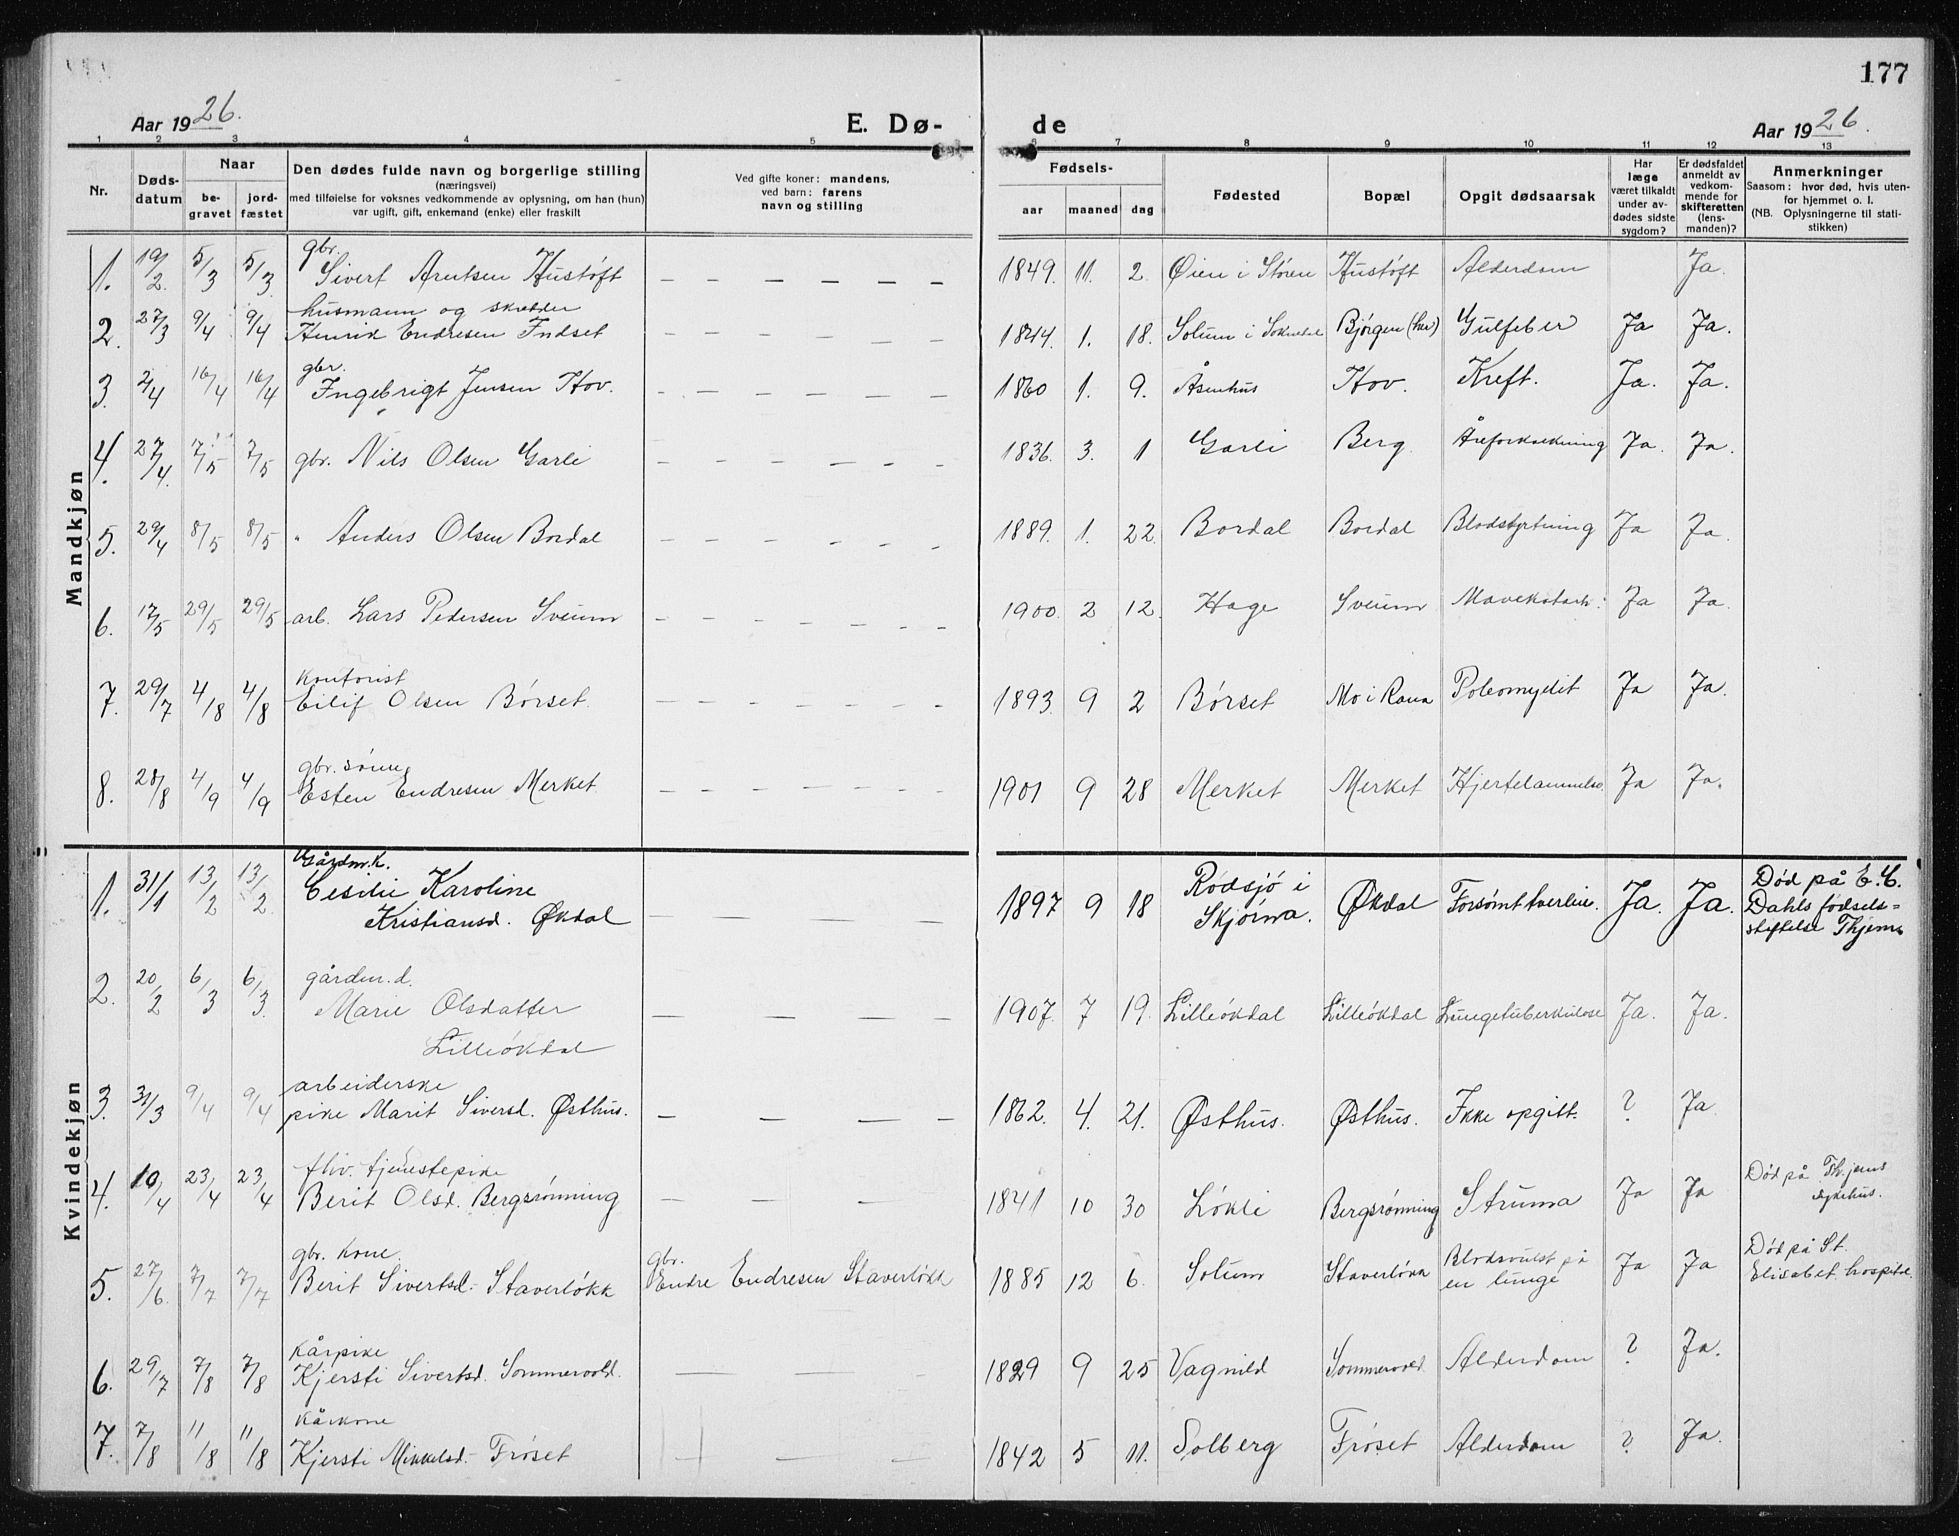 177
Aar 1926.
E. Dø-
de
Aar 1926.
1 2 3 4 5 6 7 8 9 10 11 12 13
Nr.
Døds-
datum
Naar
be-
gravet
jord-
fæstet
Den dødes fulde navn og borgerlige stilling
(næringsvei)
med tilføielse for voksnes vedkommende av oplysning, om han (hun)
var ugift, gift, enkemand (enke) eller fraskilt
Ved gifte koner: mandens,
ved barn: farens
navn og stilling
Fødsels-
aar maaned dag
Fødested
Bopæl
Opgit dødsaarsak
Har
læge
været tilkaldt
under av-
dødes sidste
sygdom?
Er dødsfaldet
anmeldt av
vedkom-
mende for
skifteretten
(lens-
manden)?
Anmerkninger
Saasom: hvor død, hvis uten-
for hjemmet o. l.
(NB. Oplysningerne til stati-
stikken)
Mandkjøn
gbr.
1. 19/2. 5/3 5/3 Sivert Arntsen Hustøft — — — — — — 1849. 11. 2. Øien i Støren Hustøft Alderdom Ja.
husmann og skrædder
2. 27/3 9/4 9/4 Henrik Endresen Indset — — — — — — 1844. 1. 18. Solum i Soknedal Bjørgen (her) Gulfeber Ja Ja.
gbr.
3. 2/4 16/4 16/4 Ingebrigt Jensen Hov. — — — — — — 1860 1. 9. Åsenhus Hov. Kreft. Ja. Ja.
4. 27/4. 7/5 7/5 gbr. Nils Olsen Garli — — — — — — 1836. 3. 1 Garli Berg Åreforkalkning Ja. Ja.
5. 29/4 8/5 8/5 " Anders Olsen Bordal — — — — — — 1889. 1. 22. Bordal Bordal Blodstyrtning Ja Ja.
6. 17/5 29/5 29/5 arb. Lars Pedersen Sveum — — — — — — 1900. 2 12. Hage Sveum Mavekatarh: Ja Ja.
kontorist
7. 29/7 4/8 4/8 Eilif Olsen Børset. — — — — — — 1893. 9 2 Børset Mo i Rana Poleomyelit Ja Ja.
gbr. sønn
8. 28/8 4/9 4/9 Esten Endresen Merket — — — — — — 1901 9 28 Merket Merket Hjertelammelse Ja Ja.
Kvindekjøn
Gårdm.k.
1. 31/1 13/2 13/2 Cesilie Karoline
Kristiansd. Økdal — — — — 1897 9 18 Rødsjø i
Skjørna. Økdal Forsømt tverleie. Ja. Ja. Død på E. C.
Dahls fødsels=
stiftelse Thjem
gårdm. d.
2. 20/2 6/3 6/3. Marie Olsdatter
Lilleøkdal — — — — 1907. 7 19. Lilleøkdal Lilleøkdal Lungetuberkulose Ja. Ja.
arbeiderske
3. 31/3 9/4 9/4 pike Marit Siversd. Østhus. — — — — 1862. 4. 21. Østhus. Østhus. Ikke opgitt. ? Ja
fhv. tjenestepike
4. 10/4 23/4 23/4 Berit Olsd. Bergsrønning — — — — 1841 10 30 Løkli Bergsrønning Struma Ja Ja Død på Th.jems
sykehus.
gbr. kone
5. 27/6. 7/7 7/7 Berit Sivertsd. Staverløkk gbr.
Endre Endresen Staverløkk 1885 12 6. Solum Staverløkk Blodsvulst på
en lunge Ja Ja Død på St.
Elisabet. hospital.
kårpike
6. 29/7 7/8 7/8 Kjersti Sivertsd. Sommervold. — — — — 1829 9 25 Vagnild Sommervold. Alderdom ? Ja.
kårkone
7. 7/8 11/8 11/8 Kjersti Mikkelsd. Frøset — — — 1842 5 11. Solberg Frøset Alderdom ? Ja.